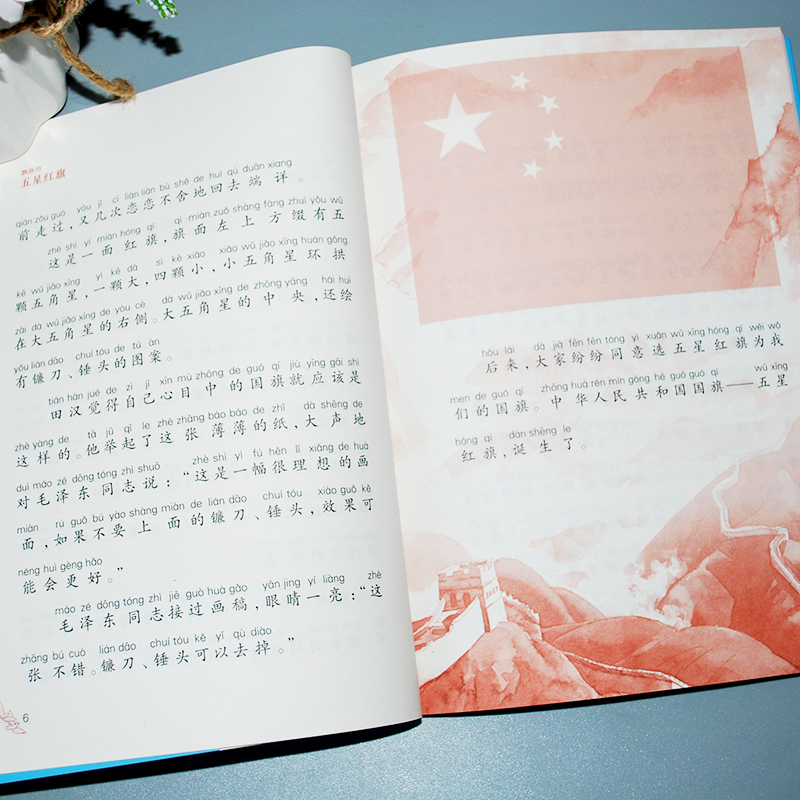 飘扬的
五星红旗
qián zǒu guò yòu jǐ cì liàn liàn bù shě de huí qù duān xiang
前走过，又几次恋恋不舍地回去端详。
zhè shì yí miàn hóng qí qí miàn zuǒ shàng fāng zhuì yǒu wǔ
这是一面红旗，旗面左上方缀有五
kē wǔ jiǎo xīng yì kē dà sì kē xiǎo xiǎo wǔ jiǎo xīng huán gǒng
颗五角星，一颗大，四颗小，小五角星环拱
zài dà wǔ jiǎo xīng de yòu cè dà wǔ jiǎo xīng de zhōng yāng hái huì
在大五角星的右侧。大五角星的中央，还绘
yǒu lián dāo chuí tóu de tú àn
有镰刀、锤头的图案。
tián hàn jué de zì jǐ xīn mù zhōng de guó qí jiù yīng gāi shì
田汉觉得自己心目中的国旗就应该是
zhè yàng de tā jǔ qǐ le zhè zhāng báo báo de zhǐ dà shēng de
这样的。他举起了这张薄薄的纸，大声地
duì máo zé dōng tóng zhì shuō zhè shì yì fú hěn lǐ xiǎng de huà
对毛泽东同志说：“这是一幅很理想的画
miàn rú guǒ bú yào shàng miàn de lián dāo chuí tóu xiào guǒ kě
面，如果不要上面的镰刀、锤头，效果可
néng huì gèng hǎo
能会更好。”
máo zé dōng tóng zhì jiē guò huà gǎo yǎn jing yí liàng zhè
毛泽东同志接过画稿，眼睛一亮：“这
zhāng bú cuò lián dāo chuí tóu kě yǐ qù diào
张不错。镰刀、锤头可以去掉。”
6
hòu lái dà jiā fēn fēn tóng yì xuǎn wǔ xīng hóng qí wéi wǒ
后来，大家纷纷同意选五星红旗为我
men de guó qí zhōng huá rén mín gòng hé guó guó qí wǔ xīng
们的国旗。中华人民共和国国旗——五星
hóng qí dàn shēng le
红旗，诞生了。